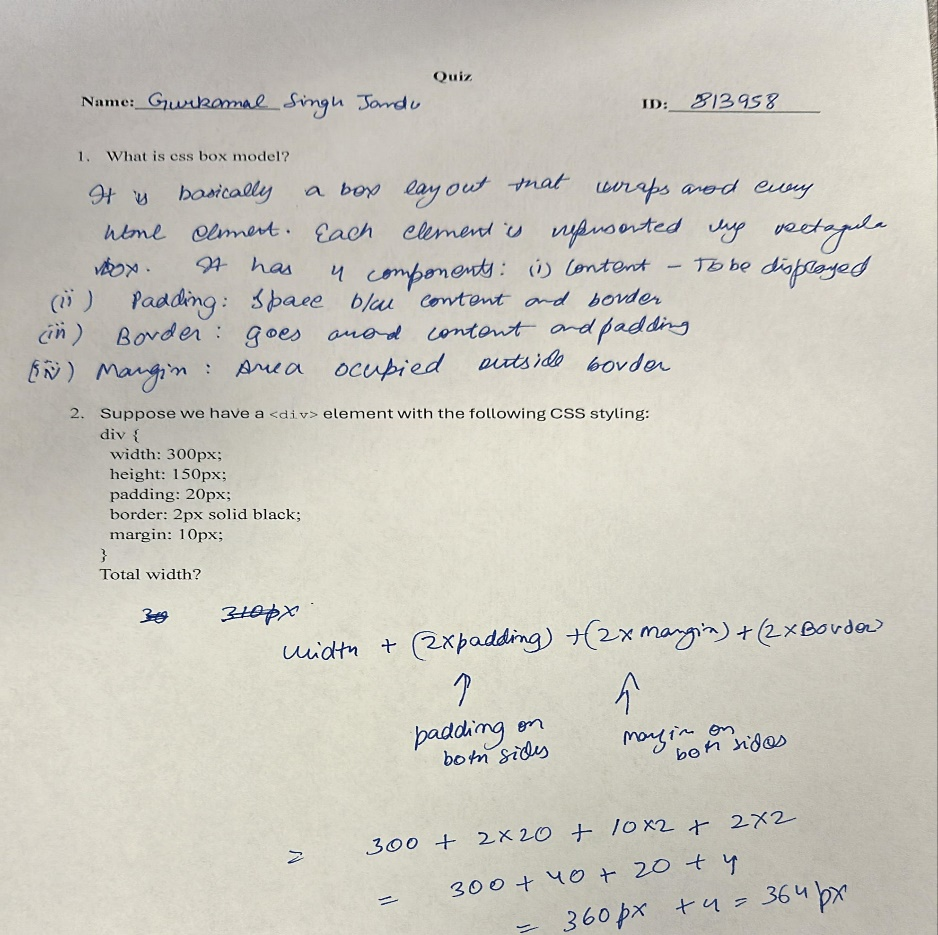 Quiz
Name: Gurkamal Singh Jandu ID: 813958
1. What is css box model?
It is basically a box layout that wraps arod every
html elment. Each element is represented by rectagula
box. It has 4 components: (i) Content - To be displayed
(ii) Padding: Space b/w content and border
(iii) Border: goes arond content and padding
(iv) Margin: Area ocupied outside border
2. Suppose we have a <div> element with the following CSS styling:
div {
width: 300px;
height: 150px;
padding: 20px;
border: 2px solid black;
margin: 10px;
}
Total width?
30 310px
width + (2xpadding) + (2x margin) + (2xBorder)
↑ ↑
padding on margin on
both sides both sides
= 300 + 2x20 + 10x2 + 2x2
= 300 + 40 + 20 + 4
= 360px + 4 = 364px